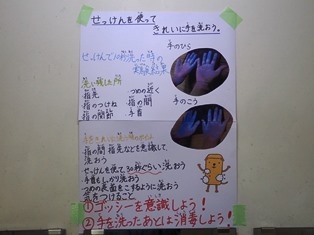 せっけんを使って
きれいに手を洗おう。
せっけんで10秒洗った時の
実験結果
手のひら
洗い残した所
指先 つめの近く
指のつけね 指の間
指の関節 手首
手のこう
指の間 指先などを意識して、
洗おう
せっけんを使て30秒ぐらい洗おう
手首もしっかり洗おう
つめの表面をこするように洗おう
気をつけること
①ゴッシーを意識しよう！
②手を洗ったあとは消毒しよう！